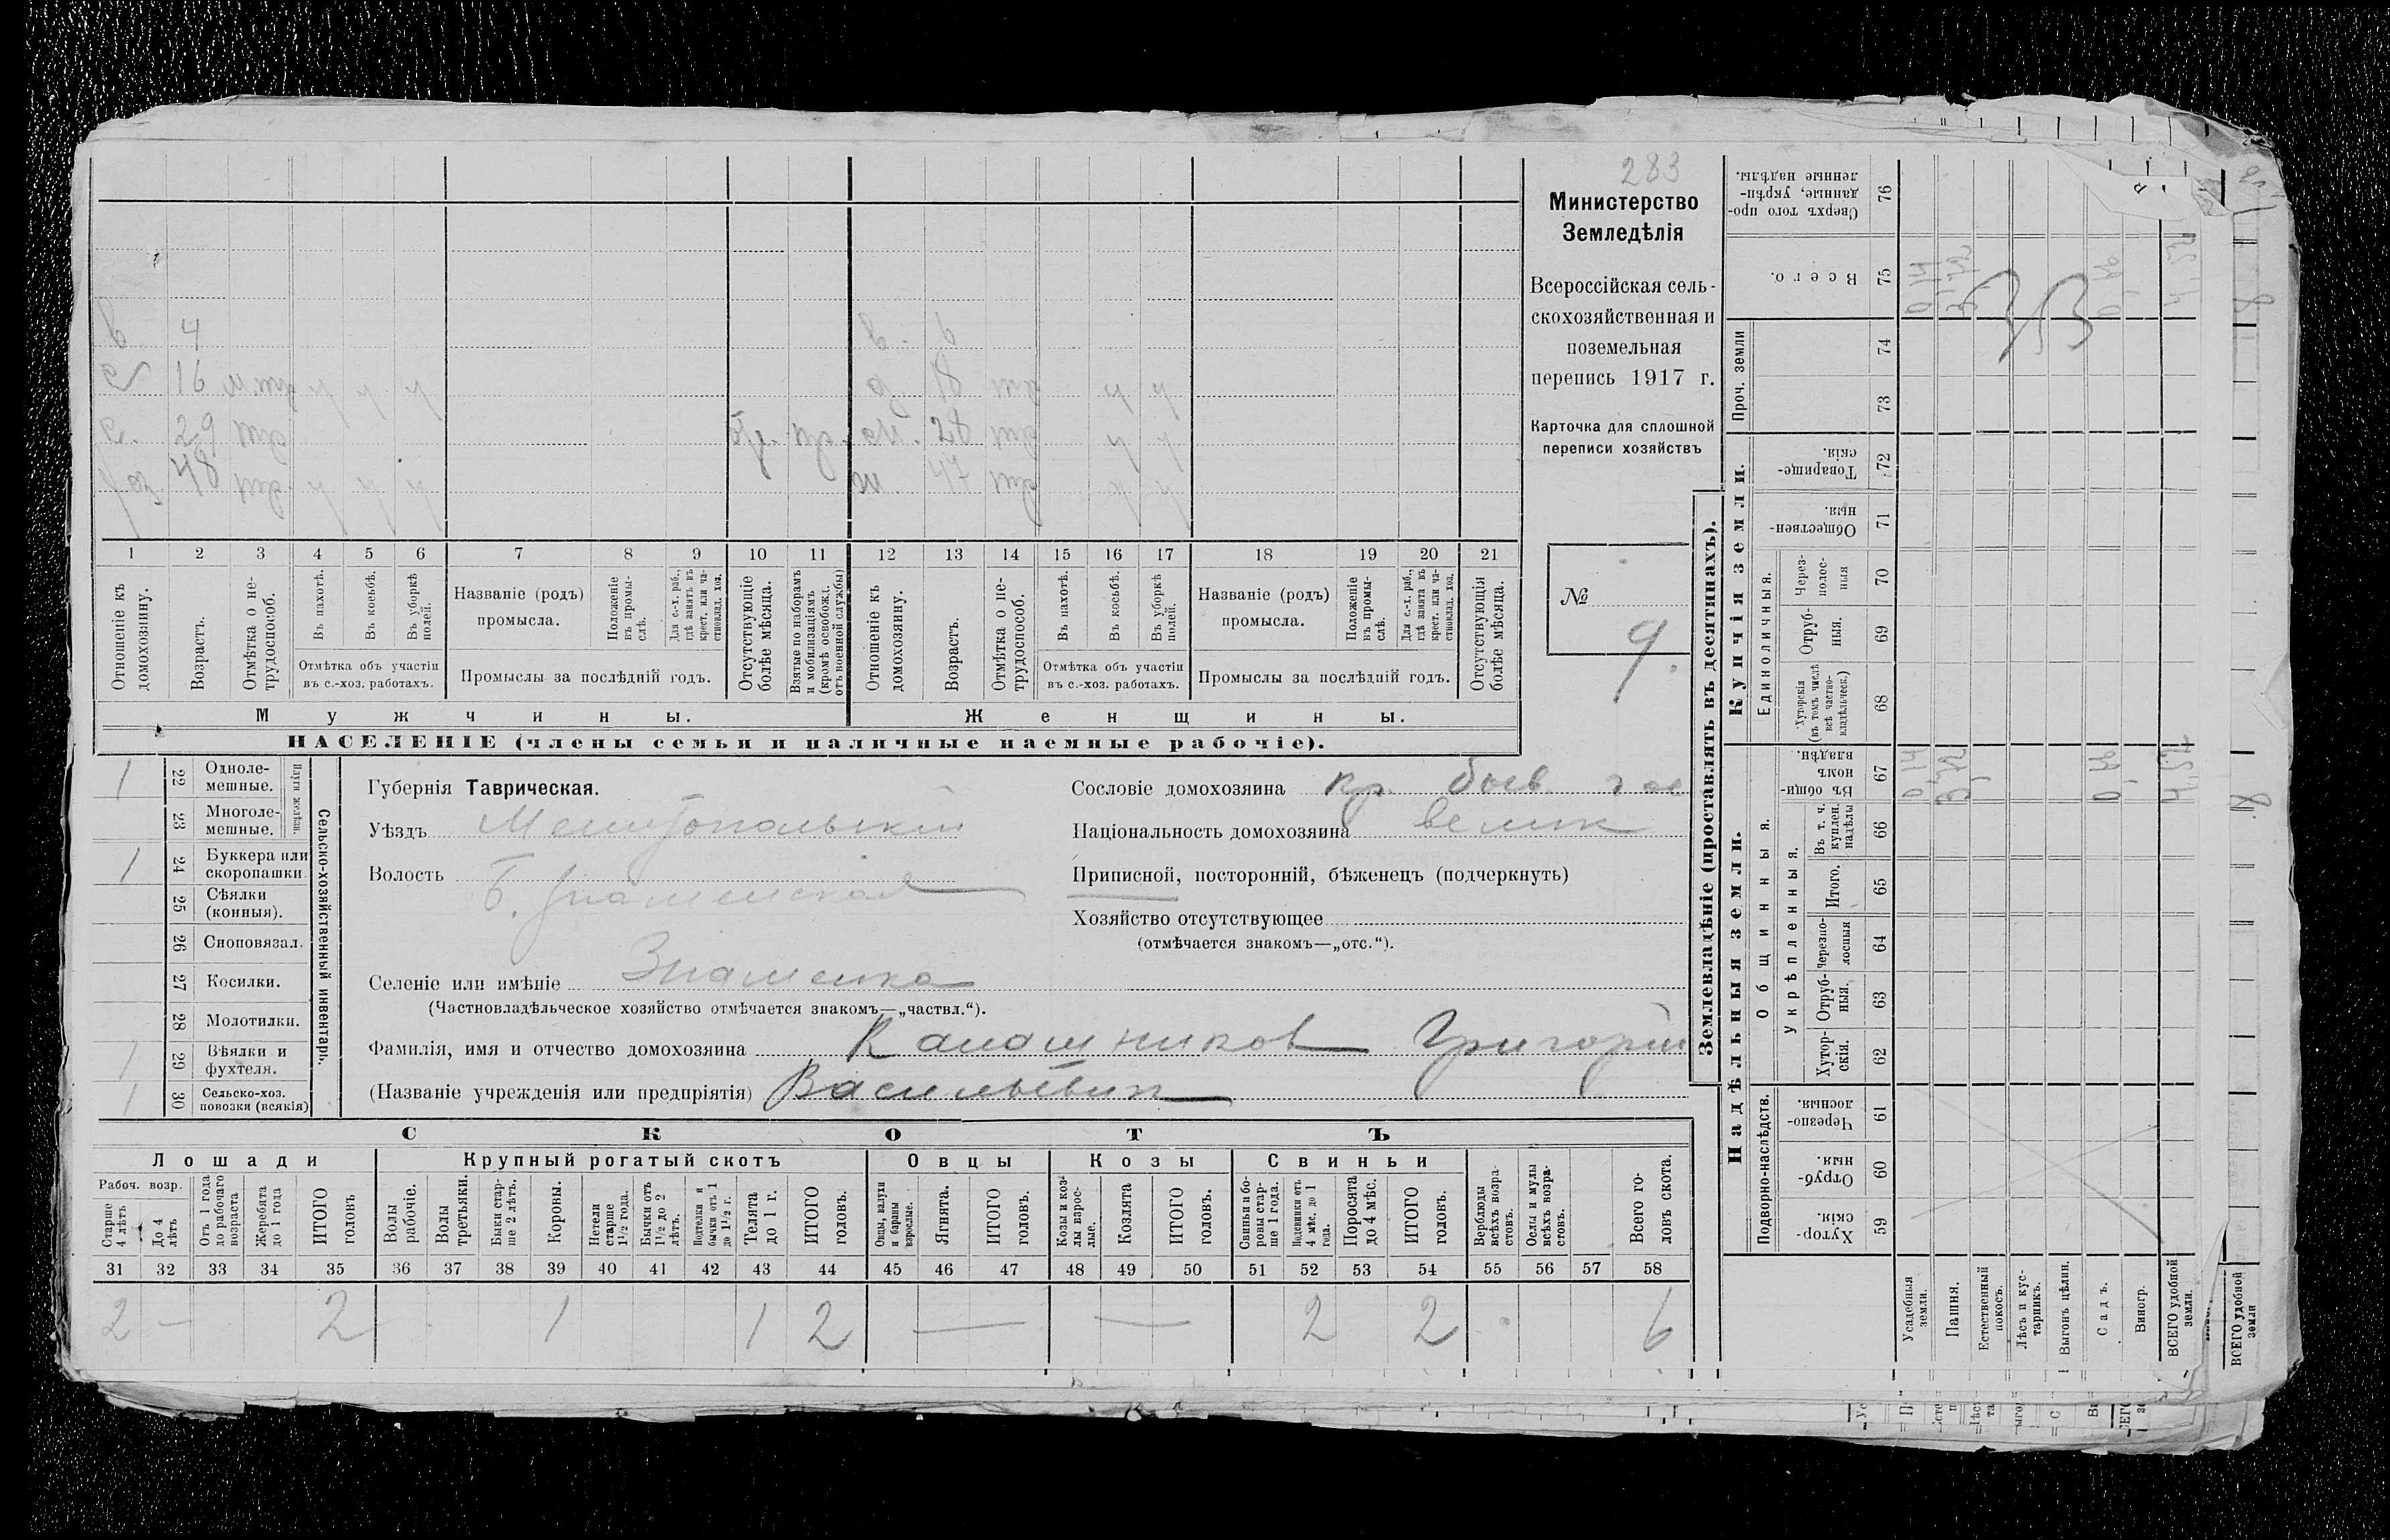 283
Министерство
Земледѣлія
Всероссійская сель-
скохозяйственная и
поземельная
перепись 1917 г.
Карточка для сплошной
переписи хозяйствъ
№
9.
в 4
с 16
с. 29
хоз. 48
в. 6
д 18
сн. 28
ж. 47
1 2 3 4 5 6 7 8 9 10 11 12 13 14 15 16 17 18 19 20 21
Отношеніе къ домохозяину.
Возрастъ.
Отмѣтка о не-трудоспособ.
Въ пахотѣ.
Въ косьбѣ.
Въ уборкѣ полей.
Отмѣтка объ участіи
въ с.-хоз. работахъ.
Названіе (родъ)
промысла.
Положеніе въ промы-слѣ.
Для с.-х. раб., гдѣ занятъ въ крест. или ча-стновлад. хоз.
Промыслы за послѣдній годъ.
Отсутствующіе болѣе мѣсяца.
Взятые по наборамъ и мобилизаціямъ (кромѣ освобожд. отъ военной службы)
Отношеніе къ домохозяину.
Возрастъ.
Отмѣтка о не-трудоспособ.
Въ пахотѣ.
Въ косьбѣ.
Въ уборкѣ полей.
Отмѣтка объ участіи
въ с.-хоз. работахъ.
Названіе (родъ)
промысла.
Положеніе въ промы-слѣ.
Для с.-х. раб., гдѣ занята въ крест. или ча-стновлад. хоз.
Промыслы за послѣдній годъ.
Отсутствующія болѣе мѣсяца.
Мужчины.
Женщины.
НАСЕЛЕНІЕ (члены семьи и наличные наемные рабочіе).
Сельско-хозяйственный инвентарь.
1 22 Одноле-мешные.
23 Многоле-мешные.
1 24 Буккера или скоропашки
25 Сѣялки (конныя).
26 Сноповязал.
27 Косилки.
28 Молотилки.
1 29 Вѣялки и фухтеля.
1 30 Сельско-хоз. повозки (всякія)
Губернія Таврическая.
Уѣздъ Мелитопольскій
Волость Б. Знаменская
Селеніе или имѣніе Знаменка
(Частновладѣльческое хозяйство отмѣчается знакомъ—„частвл.“).
Фамилія, имя и отчество домохозяина Калашников Григорій
(Названіе учрежденія или предпріятія) Васильевич
Сословіе домохозяина кр. бывш гос
Національность домохозяина велик
Приписной, посторонній, бѣженецъ (подчеркнуть)
Хозяйство отсутствующее
(отмѣчается знакомъ—„отс.“).
СКОТЪ
Лошади
Крупный рогатый скотъ
Овцы
Козы
Свиньи
Рабоч. возр.
Старше 4 лѣтъ
До 4 лѣтъ
Отъ 1 года до рабочаго возраста
Жеребята до 1 года
ИТОГО головъ
Волы рабочіе.
Волы третьяки.
Быки стар-ше 2 лѣтъ.
Коровы.
Нетели старше 1 1/2 года.
Бычки отъ 1 1/2 до 2 лѣтъ.
Подтелки и бычки отъ 1 до 1 1/2 г.
Телята до 1 г.
ИТОГО головъ.
Овцы, валухи и бараны взрослые.
Ягнята.
ИТОГО головъ.
Козы и коз-лы взрос-лые.
Козлята
ИТОГО головъ.
Свиньи и бо-ровы стар-ше 1 года.
Подсвинки отъ 4 мѣс. до 1 года.
Поросята до 4 мѣс.
ИТОГО головъ.
Верблюды всѣхъ возра-стовъ.
Ослы и мулы всѣхъ возра-стовъ.
Всего го-ловъ скота.
31 32 33 34 35 36 37 38 39 40 41 42 43 44 45 46 47 48 49 50 51 52 53 54 55 56 57 58
2 — 2 1 1 2 — — 2 2 6
Землевладѣніе (проставлять въ десятинахъ).
Купчія земли.
Надѣльныя земли.
Проч. земли
Единоличныя.
Общинныя.
Укрѣпленныя.
Подворно-наслѣдств.
Сверхъ того про-данные, укрѣп-ленные надѣлы. 76
Всего. 75
74
73
Товарище-скія. 72
Обществен-ныя. 71
Через-полос-ныя 70
Отруб-ныя. 69
Хуторскія (въ томъ числѣ всѣ частно-владѣльческ.) 68
Въ общи-номъ владѣн. 67
Въ т. ч. куплен. надѣлы 66
Итого. 65
Черезпо-лосныя 64
Отруб-ныя. 63
Хутор-скія. 62
Черезпо-лосныя. 61
Отруб-ныя. 60
Хутор-скія. 59
Усадебныя земли.
Пашня.
Естественный покосъ.
Лѣсъ и кус-тарникъ.
Выгонъ цѣлин.
Садъ.
Виногр.
ВСЕГО удобной земли.
ВСЕГО удобной земли